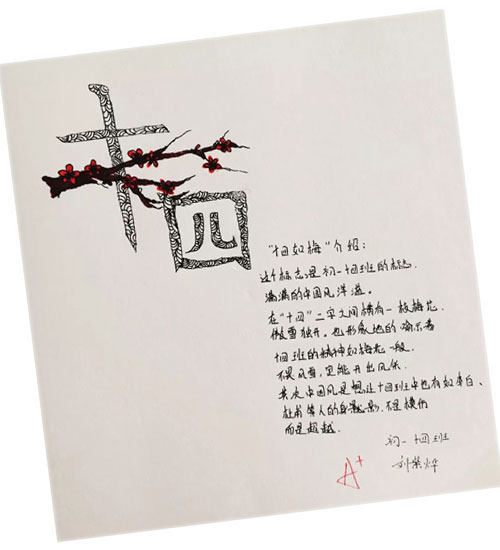 十四
"十四如梅"介绍：
这个标志是初一十四班的标志，
满满的中国风洋溢。
在"十四"二字之间横有一枝梅花，
傲雪独开。也形象地的喻示着
十四班的精神如梅花一般，
不畏风雪，更能开出风采。
其次中国风是想让十四班中也有如李白、
杜甫等人的身影，不是模仿
而是超越.
初一十四班
刘紫烨
A+